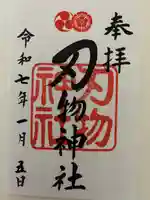 奉拝
刃物神社
刃物神社
令和七年一月五日